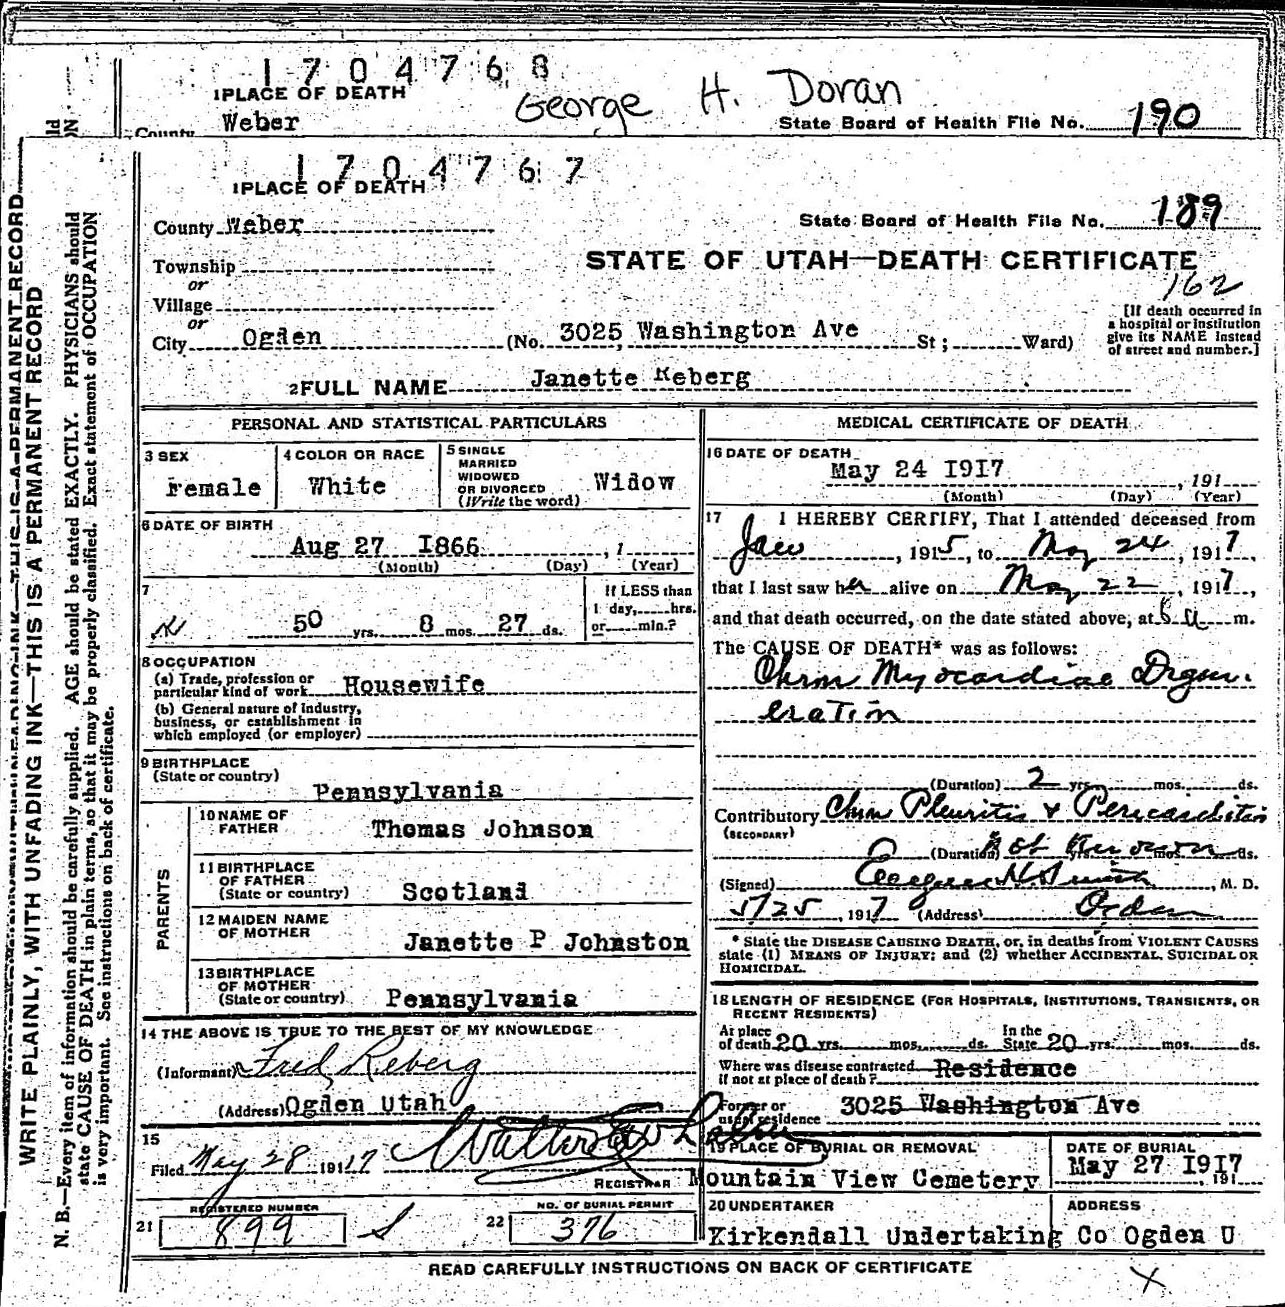 1704768
1PLACE OF DEATH
George H. Doran
County Weber
State Board of Health File No. 190
1704767
1PLACE OF DEATH
County Weber
State Board of Health File No. 189
Township
STATE OF UTAH—DEATH CERTIFICATE
162
or
Village
or
City Ogden (No. 3025 Washington Ave St; Ward)
[If death occurred in
a hospital or institution
give its NAME instead
of street and number.]
2FULL NAME Janette Reberg
PERSONAL AND STATISTICAL PARTICULARS
3 SEX
Female
4 COLOR OR RACE
White
5 SINGLE
MARRIED
WIDOWED
OR DIVORCED
(Write the word)
Widow
6 DATE OF BIRTH
Aug 27 1866 , 1
(Month) (Day) (Year)
7
50 yrs. 8 mos. 27 ds.
If LESS than
1 day, hrs.
or min.?
8 OCCUPATION
(a) Trade, profession or
particular kind of work Housewife
(b) General nature of industry,
business, or establishment in
which employed (or employer)
9 BIRTHPLACE
(State or country)
Pennsylvania
PARENTS
10 NAME OF
FATHER Thomas Johnson
11 BIRTHPLACE
OF FATHER
(State or country) Scotland
12 MAIDEN NAME
OF MOTHER
Janette P Johnston
13 BIRTHPLACE
OF MOTHER
(State or country) Pennsylvania
14 THE ABOVE IS TRUE TO THE BEST OF MY KNOWLEDGE
(Informant) Fred Reberg
(Address) Ogden Utah
15
Filed May 28 19117
REGISTRAR
REGISTERED NUMBER
21 899
NO. OF BURIAL PERMIT
22 376
MEDICAL CERTIFICATE OF DEATH
16 DATE OF DEATH
May 24 1917 , 191
(Month) (Day) (Year)
17 I HEREBY CERTIFY, That I attended deceased from
Jan , 1915, to May 24 , 1917,
that I last saw her alive on May 22 , 1917,
and that death occurred, on the date stated above, at m.
The CAUSE OF DEATH* was as follows:
Chrn Myocardiac Degen-
eration
(Duration) 2 yrs. mos. ds.
Contributory Chrn Pleuritis & Pericarditis
(SECONDARY)
(Duration) Not Known yrs. mos. ds.
(Signed) , M. D.
5/25 , 1917 (Address) Ogden
* State the DISEASE CAUSING DEATH, or, in deaths from VIOLENT CAUSES
state (1) MEANS OF INJURY; and (2) whether ACCIDENTAL, SUICIDAL OR
HOMICIDAL.
18 LENGTH OF RESIDENCE (FOR HOSPITALS, INSTITUTIONS, TRANSIENTS, OR
RECENT RESIDENTS)
At place
of death 20 yrs. mos. ds.
In the
State 20 yrs. mos. ds.
Where was disease contracted
if not at place of death? Residence
Former or
usual residence 3025 Washington Ave
19 PLACE OF BURIAL OR REMOVAL
Mountain View Cemetery
DATE OF BURIAL
May 27 1917 , 191
20 UNDERTAKER
Kirkendall Undertaking Co
ADDRESS
Ogden U
READ CAREFULLY INSTRUCTIONS ON BACK OF CERTIFICATE
X
WRITE PLAINLY, WITH UNFADING INK—THIS IS A PERMANENT RECORD
N. B.—Every item of information should be carefully supplied. AGE should be stated EXACTLY. PHYSICIANS should
state CAUSE OF DEATH in plain terms, so that it may be properly classified. Exact statement of OCCUPATION
is very important. See instructions on back of certificate.